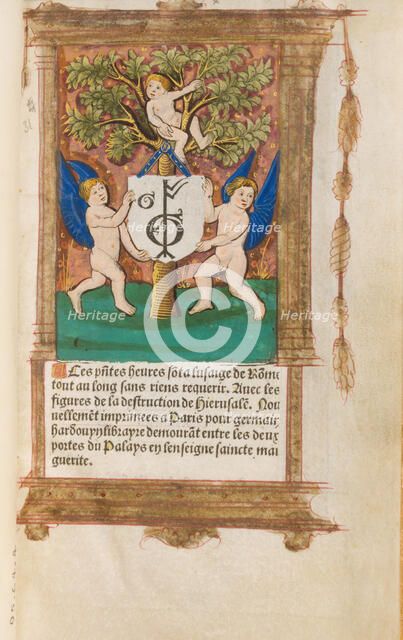 Ces pñtes heures sõt a lusaige de Rõme
tout au long sans riens requerir. Auec les
figures de la destruction de Hierusalẽ. Nou
uellemẽt imprimees a Paris pour germain
hardouyn librayre demourãt entre les deux
portes du Palays en lenseigne saincte mar
guerite.